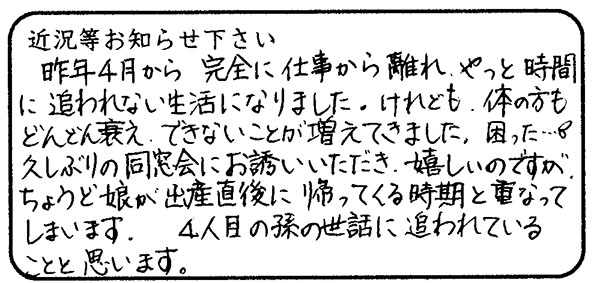 近況等お知らせ下さい
昨年4月から 完全に仕事から離れ、やっと時間
に追われない生活になりました。けれども、体の方も
どんどん衰え、できないことが増えてきました。困った…
久しぶりの同窓会にお誘いいただき、嬉しいのですが、
ちょうど娘が出産直後に帰ってくる時期と重なって
しまいます。 4人目の孫の世話に追われている
ことと思います。